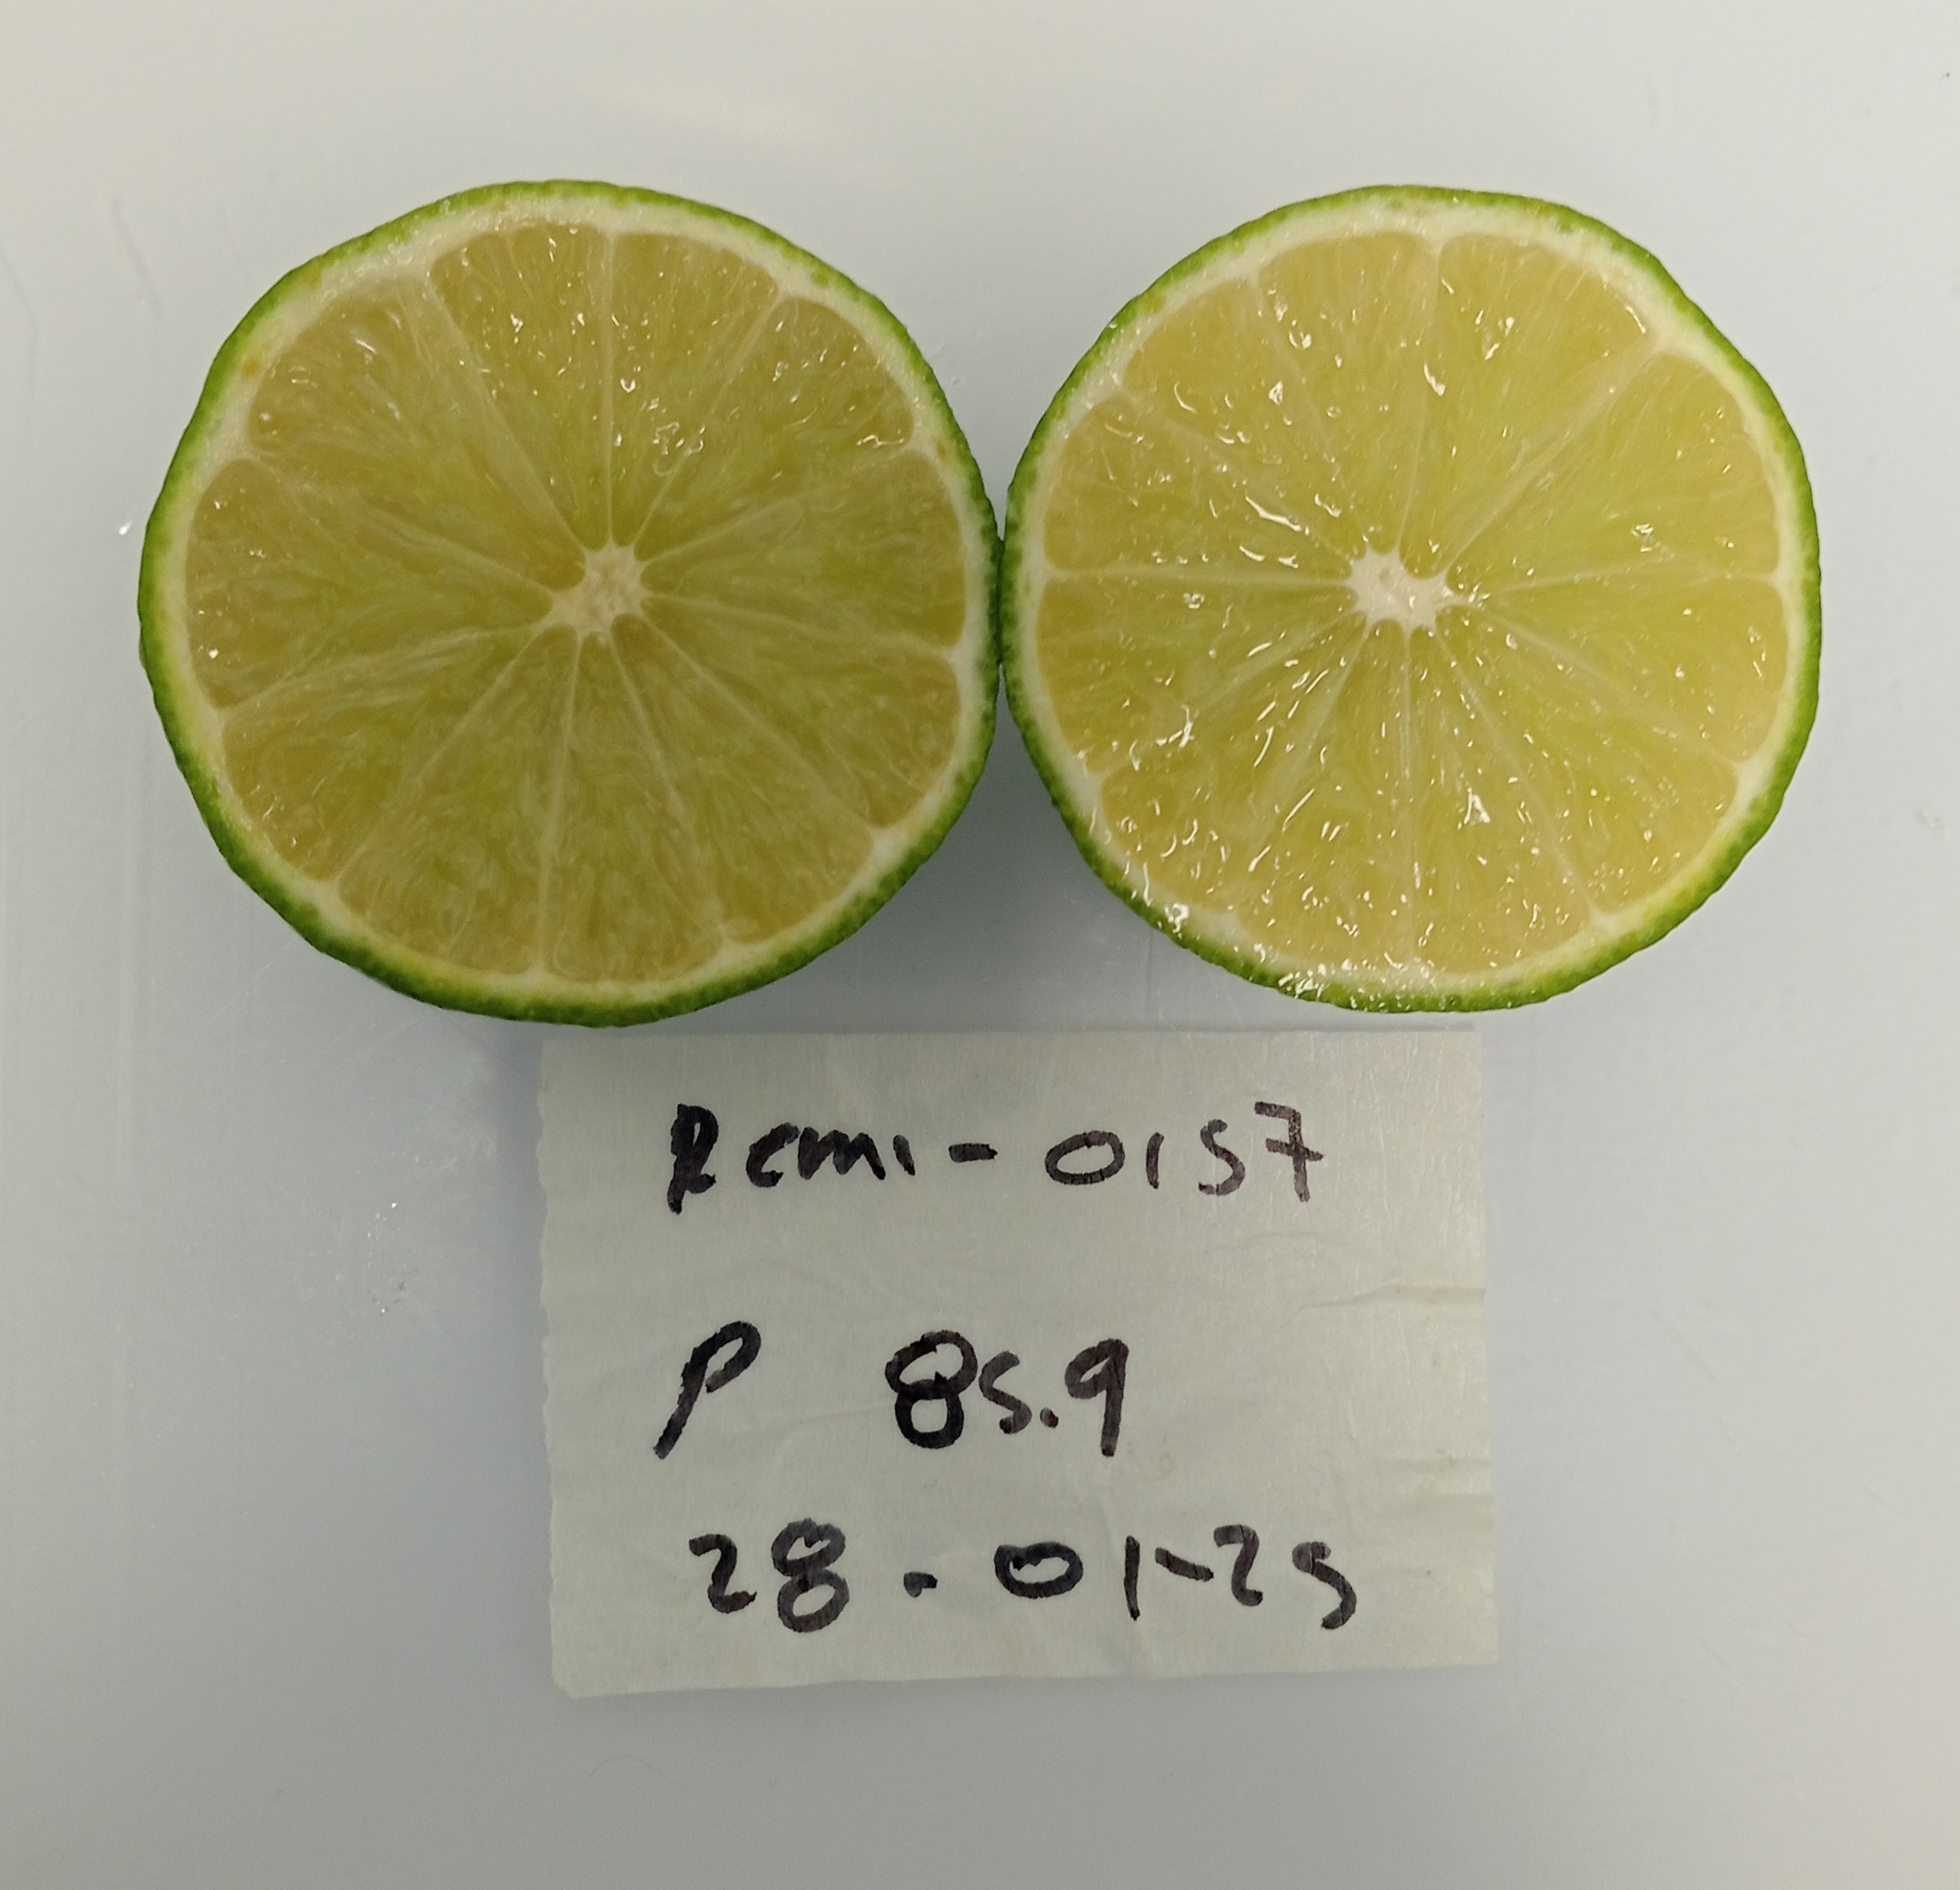 Remi-0157
P 85.9
28-01-25